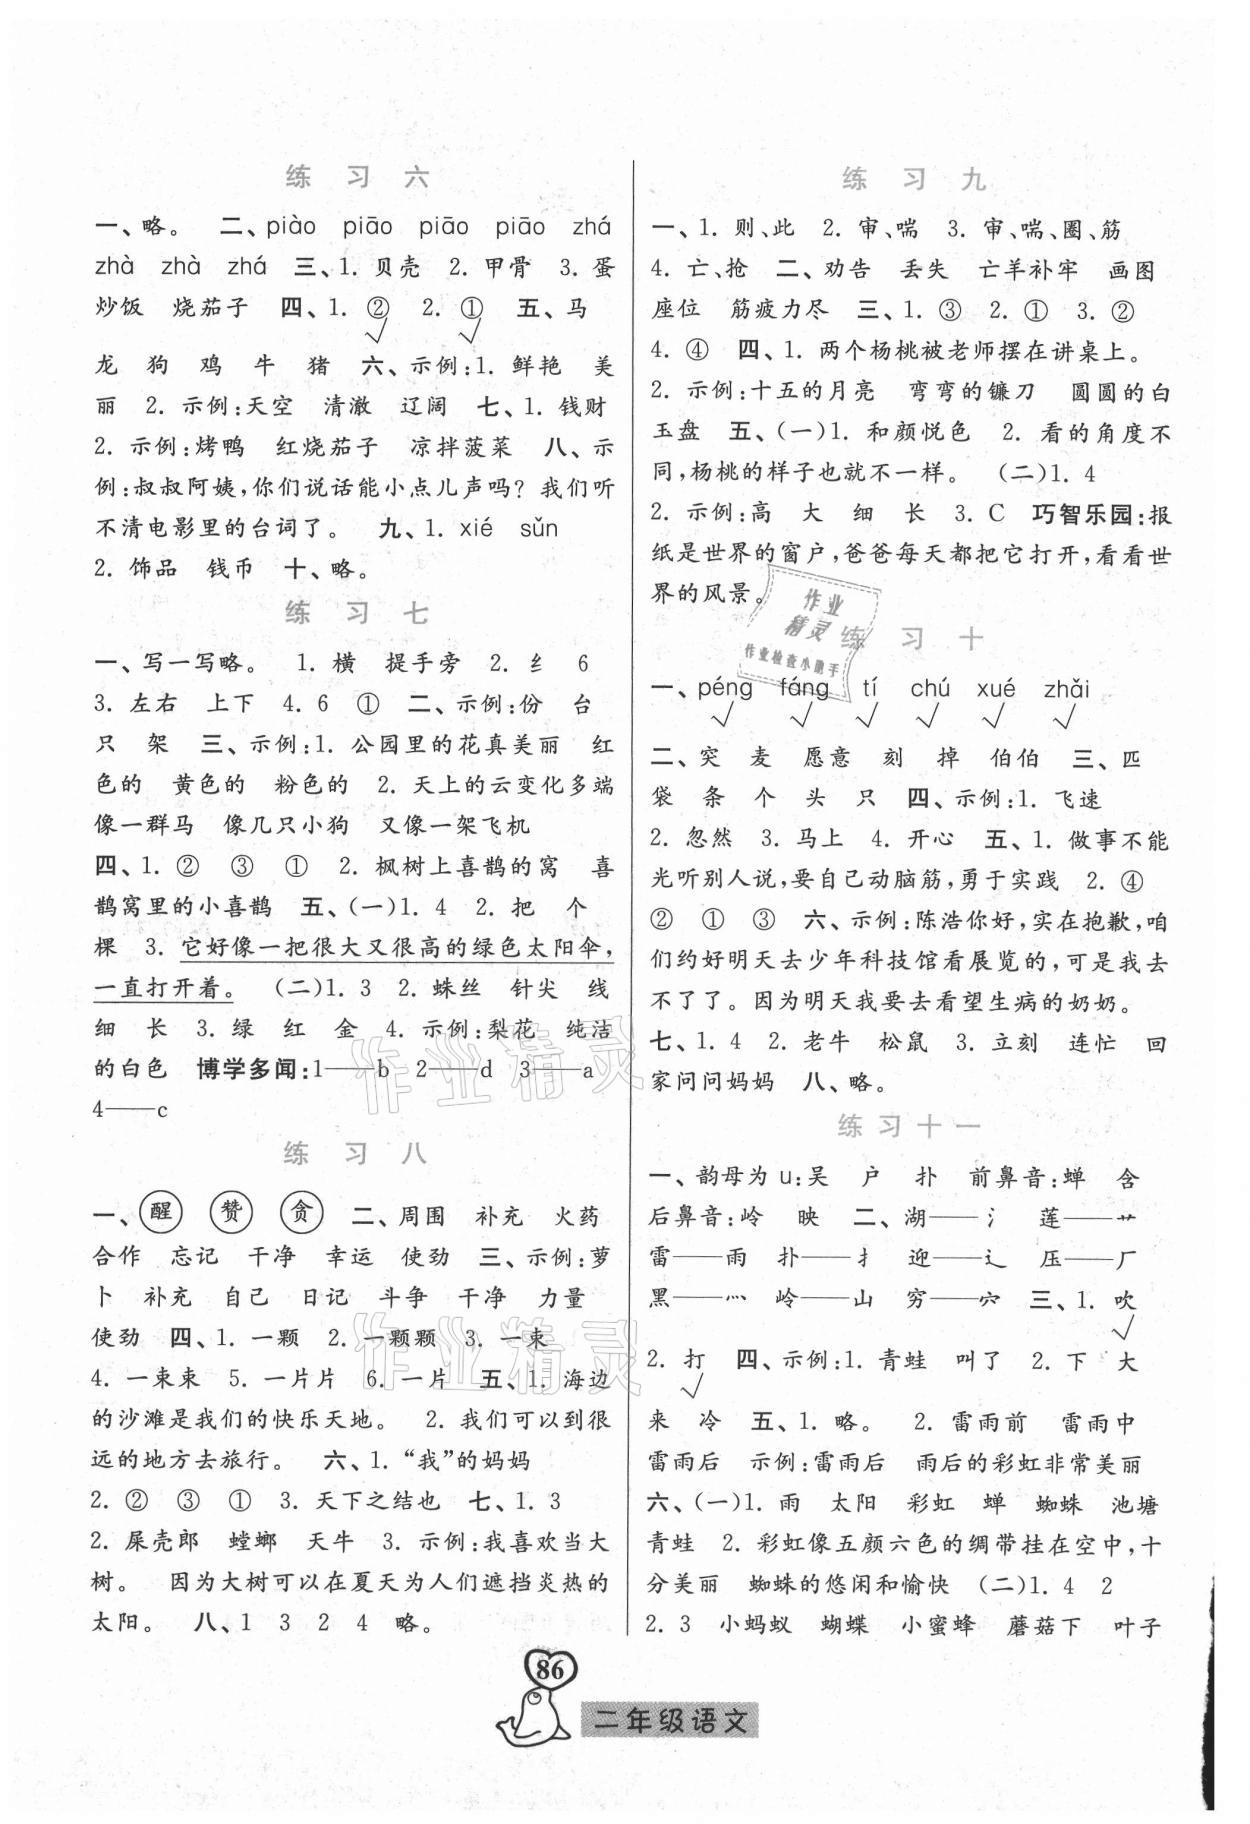 练 习 六
一、略。 二、piào piāo piāo piāo zhá
zhà zhà zhá 三、1. 贝壳 2. 甲骨 3. 蛋
炒饭 烧茄子 四、1. ② 2. ① 五、马
√ √
龙 狗 鸡 牛 猪 六、示例:1. 鲜艳 美
丽 2. 示例:天空 清澈 辽阔 七、1. 钱财
2. 示例:烤鸭 红烧茄子 凉拌菠菜 八、示
例:叔叔阿姨,你们说话能小点儿声吗? 我们听
不清电影里的台词了。 九、1. xié sǔn
2. 饰品 钱币 十、略。
练 习 七
一、写一写略。 1. 横 提手旁 2. 纟 6
3. 左右 上下 4. 6 ① 二、示例:份 台
只 架 三、示例:1. 公园里的花真美丽 红
色的 黄色的 粉色的 2. 天上的云变化多端
像一群马 像几只小狗 又像一架飞机
四、1. ② ③ ① 2. 枫树上喜鹊的窝 喜
鹊窝里的小喜鹊 五、(一)1. 4 2. 把 个
棵 3. 它好像一把很大又很高的绿色太阳伞,
一直打开着。 (二)1. 3 2. 蛛丝 针尖 线
细 长 3. 绿 红 金 4. 示例:梨花 纯洁
的白色 博学多闻:1——b 2——d 3——a
4——c
练 习 八
一、醒 赞 贪 二、周围 补充 火药
合作 忘记 干净 幸运 使劲 三、示例:萝
卜 补充 自己 日记 斗争 干净 力量
使劲 四、1. 一颗 2. 一颗颗 3. 一束
4. 一束束 5. 一片片 6. 一片 五、1. 海边
的沙滩是我们的快乐天地。 2. 我们可以到很
远的地方去旅行。 六、1. “我”的妈妈
2. ② ③ ① 3. 天下之结也 七、1. 3
2. 屎壳郎 螳螂 天牛 3. 示例:我喜欢当大
树。 因为大树可以在夏天为人们遮挡炎热的
太阳。 八、1 3 2 4 略。
练 习 九
一、1. 则、此 2. 审、喘 3. 审、喘、圈、筋
4. 亡、抢 二、劝告 丢失 亡羊补牢 画图
座位 筋疲力尽 三、1. ③ 2. ① 3. ②
4. ④ 四、1. 两个杨桃被老师摆在讲桌上。
2. 示例:十五的月亮 弯弯的镰刀 圆圆的白
玉盘 五、(一)1. 和颜悦色 2. 看的角度不
同,杨桃的样子也就不一样。 (二)1. 4
2. 示例:高 大 细 长 3. C 巧智乐园:报
纸是世界的窗户,爸爸每天都把它打开,看看世
界的风景。
作业
精灵
作业检查小助手
练 习 十
一、péng fáng tí chú xué zhǎi
√ √ √ √ √ √
二、突 麦 愿意 刻 掉 伯伯 三、匹
袋 条 个 头 只 四、示例:1. 飞速
2. 忽然 3. 马上 4. 开心 五、1. 做事不能
光听别人说,要自己动脑筋,勇于实践 2. ④
② ① ③ 六、示例:陈浩你好,实在抱歉,咱
们约好明天去少年科技馆看展览的,可是我去
不了了。因为明天我要去看望生病的奶奶。
七、1. 4 2. 老牛 松鼠 3. 立刻 连忙 回
家问问妈妈 八、略。
练 习 十 一
一、韵母为 u:吴 户 扑 前鼻音:蝉 含
后鼻音:岭 映 二、湖——氵 莲——艹
雷——雨 扑——扌 迎——辶 压——厂
黑——灬 岭——山 穷——穴 三、1. 吹
√
2. 打 四、示例:1. 青蛙 叫了 2. 下 大
√
来 冷 五、1. 略。 2. 雷雨前 雷雨中
雷雨后 示例:雷雨后 雨后的彩虹非常美丽
六、(一)1. 雨 太阳 彩虹 蝉 蜘蛛 池塘
青蛙 2. 彩虹像五颜六色的绸带挂在空中,十
分美丽 蜘蛛的悠闲和愉快 (二)1. 4 2
2. 3 小蚂蚁 蝴蝶 小蜜蜂 蘑菇下 叶子
作业精灵
作业精灵
86
二年级语文